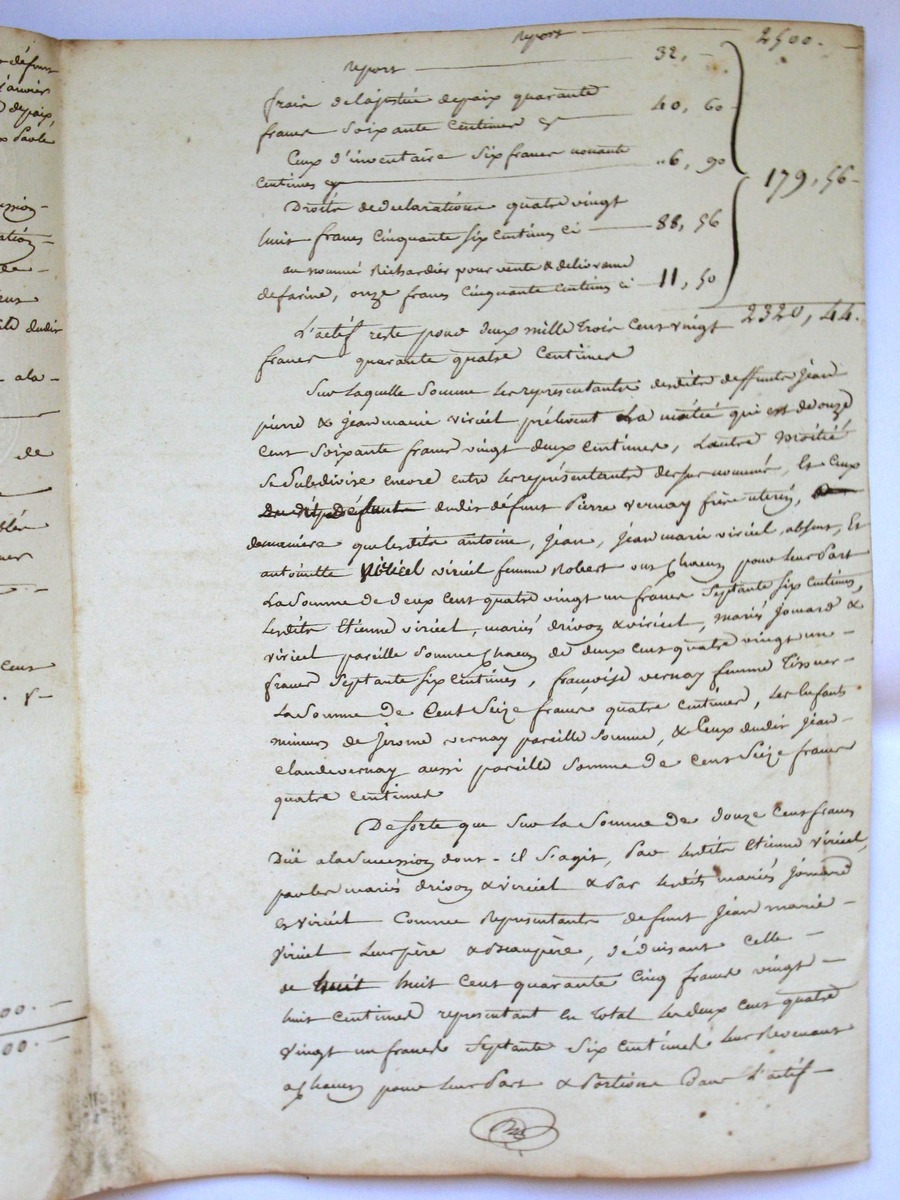 report 2500. -
report 32, -
frais de la justice de paix quarante
francs soixante centimes cy 40, 60
Ceux d'inventaire six francs nonante
centimes cy 6, 90
179, 56 -
Droits de declarations quatre vingt
huit francs cinquante six centimes ci 88, 56
au nommé Richardier pour vente & delivrance
de farine, onze francs cinquante centimes ci 11, 50
2320, 44.
L'actif reste pour deux mille trois cent vingt
francs quarante quatre centimes
Sur laquelle somme les representants desdits deffunts Jean
pierre & jean marie viriéel prélévent la moitié qui est de onze
cent soixante francs vingt deux centimes, L'autre moitié
se subdivise encore entre les représentants dessus nommé, Et ceux
dudit défunt Pierre vernay frère uterin,
de maniere que lesdits antoine, jean, jean marie viriéel absent, Et
antoinette viriéel femme Robert ont chacun pour leur part
La somme de deux cent quatre vingt un francs septante six centimes,
lesdits Etienne viriéel, mariés drivon & viriéel, mariés jomard &
viriéel pareille somme chacun de deux cent quatre vingt un -
francs septante six centimes, françoise vernay femme Tissier -
La somme de cent seize francs quatre centimes, les Enfants
mineurs de Jerome vernay pareille somme, & Ceux dudit jean -
claude vernay aussi pareille somme de cent seize francs
quatre centimes
De sorte que sur la somme de douze cent francs
Düe a la succession dont - il s'agit, par lesdits Etienne viriéel,
par les mariés drivon & viriéel & par lesdits mariés jomard
et viriéel comme Représentants defunt jean marie -
viriéel leur père & Beaupère, déduisant celle -
de huit huit cent quarante cinq francs vingt -
huit centimes representant En total les deux cent quatre
vingt un francs septante six centimes leur Revenant
a chacun pour leur part & Portions dans l'actif -